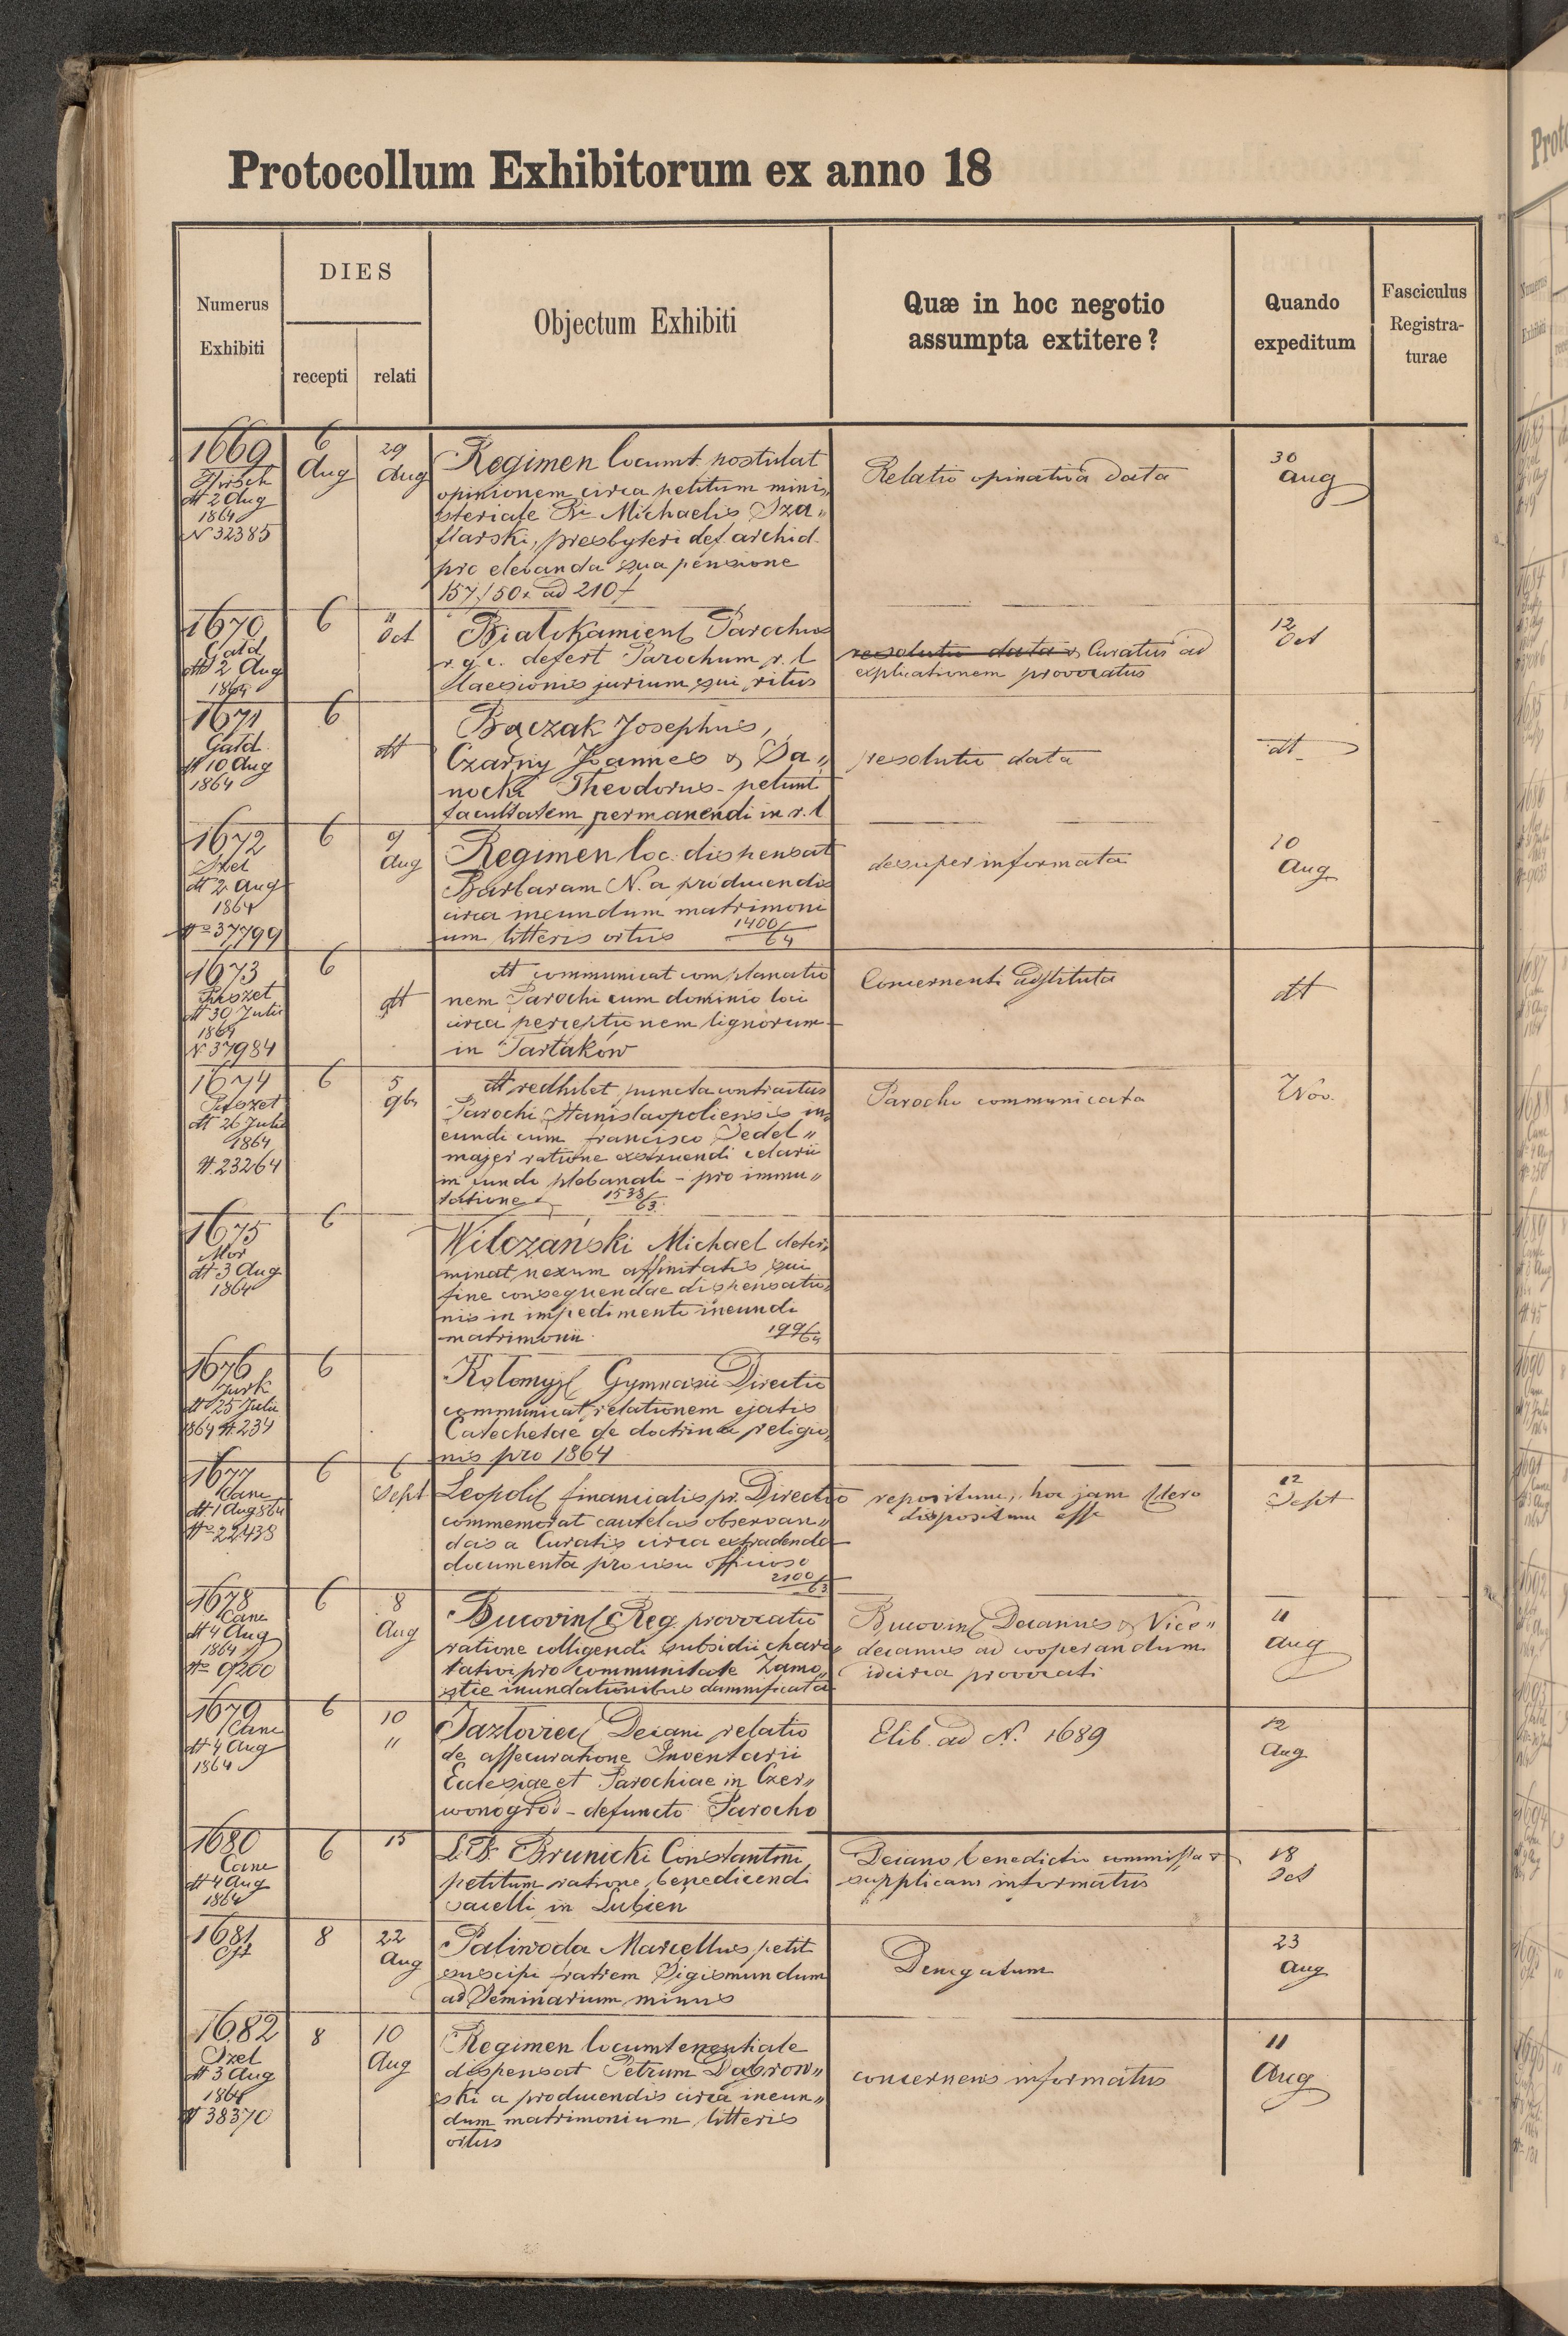 Protocollum Exhibitorum ex anno 18
Numerus
Exhibiti
DIES
recepti
relati
Objectum Exhibiti
Quæ in hoc negotio
assumpta extitere?
Quando
expeditum
Fasciculus
Registra-
turae
1669
dt 2 Aug
1864
N 32385
6
Aug
29
Aug
Regimen locumt. postulat
opinionem circa petitum mini„
steriale Michaelis Sza„
flarski, presbyteri def. archid.
pro elevanda sua pensione
157f 50x ad 210f
Relatio opinativa data
30
Aug
1670
Gald
dt 2 Aug
1864
6
11
Oct
Białikamien Parochus
r. g. c. defert Parochum r. l
laesionis jurium sui ritus
resolutio data & Curatus ad
explicationem provocatus
12
Oct
1671
Gald
dt 10 Aug
1864
6
dt
Bączak Josephus,
Czarny Joannes & Sa„
nocki Theodorus - petunt
facultatem permanendi in r. l
resolutio data
dt
1672
dt 2 Aug
1864
No 37799
6
9
Aug
Regimen loc. dispensat
Barbaram N. a producendis
circa ineundum matrimoni
um litteris ortus 1400/64
desuper informata
10
Aug
1673
dt 30 Julii
1864
N 37984
6
dt
dt communicat complanatio
nem Parochi cum dominio loci
circa perceptionem lignorum
in Tartaków
Concernenti restituta
dt
1674
dt 26 Julii
1864
N. 23264
6
5
9br
dt redhibet puncta contractus
Parochi Stanislaopoliensis in„
eundi cum francisco Sedel„
majer ratione exstruendi celarii
in fundo plebanali - pro immu„
tatione 1538/63
Parocho communicata
7 Nov.
1675
Mor
dt 3 Aug
1864
6
Wilczański Michael deter„
minat nexum affinitatis sui
fine consequendae dispensatio„
nis in impedimento ineundi
matrimonii. 199/64
1676
Jurk
dt 25 Julii
1864 N. 234
6
Kołomyj Gymnasii Directio
communicat relationem ejatis
Catechetae de doctrina religio„
nis pro 1864
1677
Canc
dt 1 Aug 864
No 22438
6
6
Sept
Leopol financialis pr. Directio
commemorat cautelas observan„
das a Curatis circa extradenda
documenta pro usu officioso
2100/63
repositum, hoc jam Clero
dispositum esse
12
Sept
1678
Canc
dt 4 Aug
1864
No 9200
6
8
Aug
Bucovin Reg. provocatio
ratione colligendi subsidii chari„
tativi pro communitate Zamo„
stie inundationibus damnificata
Bucovin Decanus & Vice„
decanus ad cooperandum
idcirca provocati
11
Aug
1679
Canc
dt 4 Aug
1864
6
10
"
Jazłoviec Decani relatio
de assecuratione Inventarii
Ecclesiae et Parochiae in Czer„
wonogród - defuncto Parocho
Elib. ad N. 1689
12
Aug
1680
Canc
dt 4 Aug
1864
6
15
L. B. Brunicki Constantini
petitum ratione benedicendi
sacelli in Lubień
Decano benedictio commissa &
supplicans informatus
18
Oct
1681
8
22
Aug
Paliwoda Marcellus petit
suscipi fratrem Sigismundum
ad Seminarium minus
Denegatum
23
Aug
1682
Szel
dt 3 Aug
1864
N 38370
8
10
Aug
Regimen locumtenentiale
dispensat Petrum Dąbrow„
ski a producendis circa ineun„
dum matrimonium litteris
ortus
concernens informatus
11
Aug